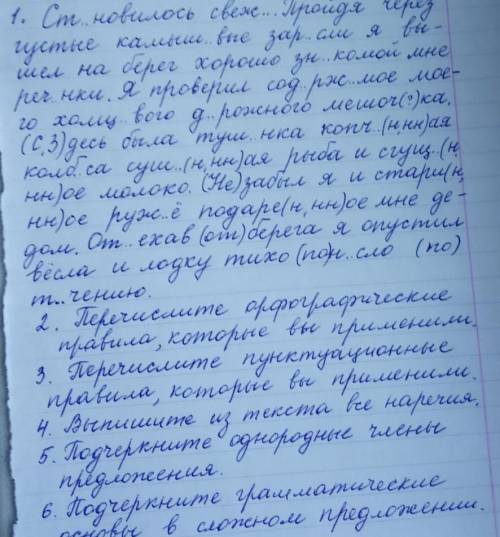 1. Ст..новилось свеж... Пройдя через
густые камыш..вые зар..сли я вы-
шел на берег хорошо зн..комой мне
реч..нки. Я проверил сод..рж..мое мое-
го холщ..вого д..рожного мешоч(?)ка.
(С,З)десь была туш..нка копч..(н,нн)ая
колб..са суш..(н,нн)ая рыба и сгущ..(н,
нн)ое молоко. (Не)забыл я и стари(н,
нн)ое руж..ё подаре(н,нн)ое мне де-
дом. От..ехав (от)берега я опустил
вёсла и лодку тихо (по)н..сло (по)
т..чению.
2. Перечислите орфографические
правила, которые вы применили.
3. Перечислите пунктуационные
правила, которые вы применили.
4. Выпишите из текста все наречия.
5. Подчеркните однородные члены
предложения.
6. Подчеркните грамматические
основы в сложном предложении.